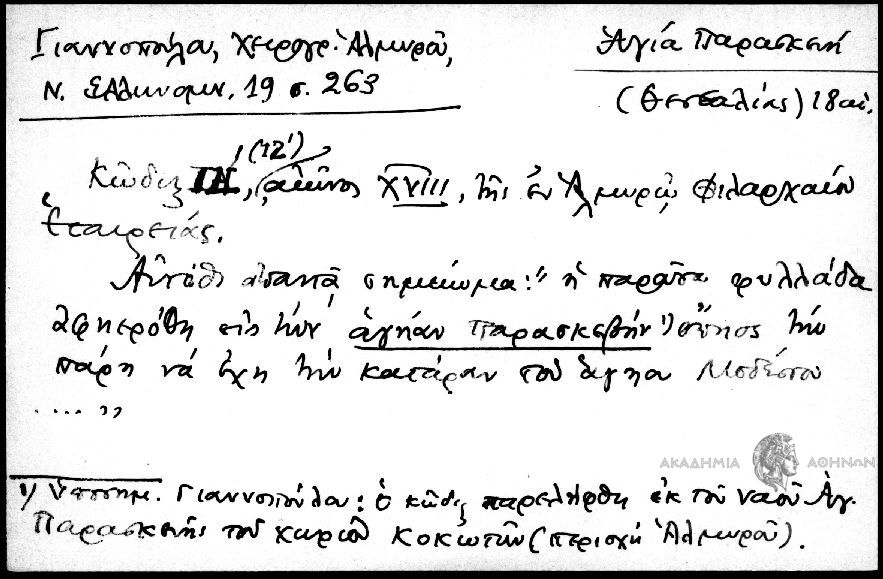 Γιαννοπούλου, Χειρόγρ. Ἁλμυροῦ,
Ν. Ἑλληνομν. 19 σ. 263
Ἁγία Παρασκευή
(Θεσσαλίας) 18 αἰ.
(12')
Κῶδιξ ΙΗ', αἰῶνος XVIII, τῆς ἐν Ἁλμυρῷ Φιλαρχαίου
Ἑταιρείας.
Αὐτόθι ἀπαντᾷ σημείωμα: "ἡ παροῦσα φυλλάδα
ἀφηερόθη εἰς τὴν ἁγήαν Παρασκεβὴν 1) ὅπηος τὴν
πάρη νὰ ἔχη τὴν κατάραν τοῦ ἁγηου Μοδέστου
....."
1) Ὑποσημ. Γιαννοπούλου: ὁ κῶδιξ παρελήφθη ἐκ τοῦ ναοῦ Ἁγ.
Παρασκευῆς τοῦ χωριοῦ Κοκωτῶν (περιοχὴ Ἁλμυροῦ).
ΑΚΑΔΗΜΙΑ ΑΘΗΝΩΝ